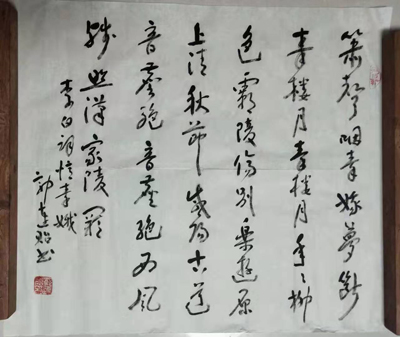 箫聲咽秦娥夢斷
秦楼月秦楼月年々柳
色霸陵傷别樂遊原
上清秋節咸陽古道
音塵絶音塵絶西風
残照漢家陵闕
李白詞憶秦娥
书